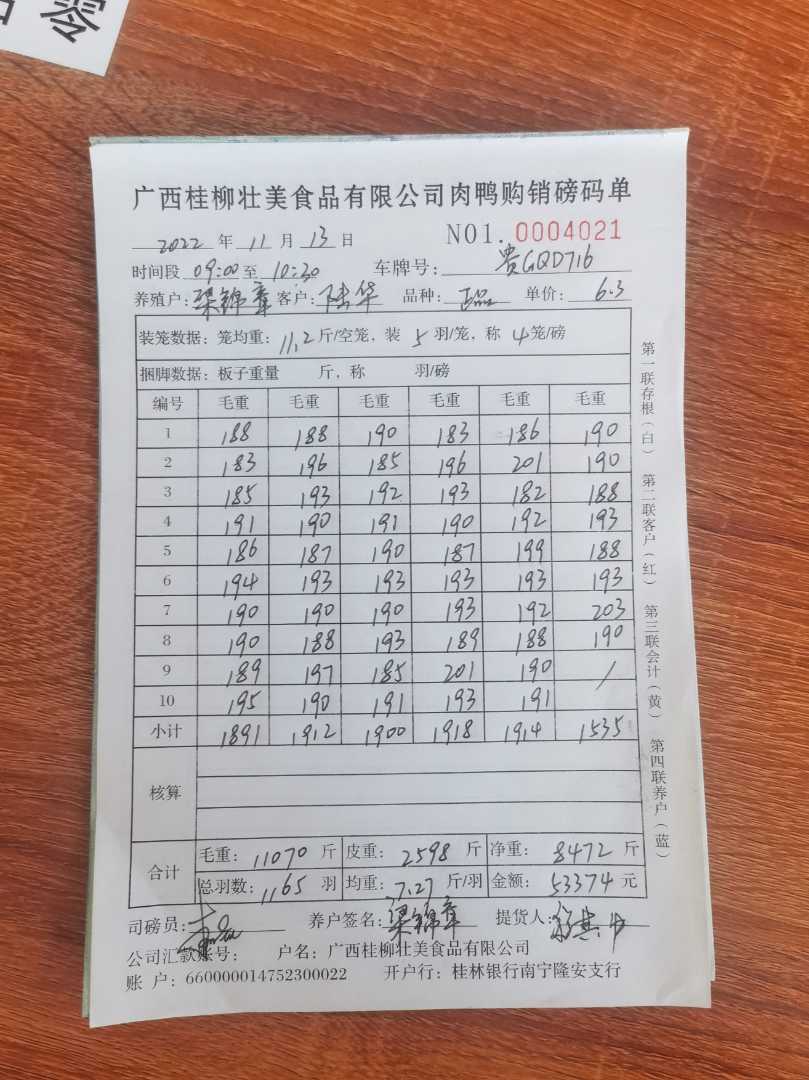 零
广西桂柳壮美食品有限公司肉鸭购销磅码单
2022 年 11 月 13 日 NO1. 0004021
时间段 09:00 至 10:30 车牌号: 贵GQD716
养殖户: 梁锦章 客户: 陆华 品种: 单价: 6.3
装笼数据: 笼均重: 11.2 斤/空笼, 装 5 羽/笼, 称 4 笼/磅
捆脚数据: 板子重量 斤, 称 羽/磅
编号 毛重 毛重 毛重 毛重 毛重 毛重
1 188 188 190 183 186 190
2 183 196 185 196 201 190
3 185 193 192 193 182 188
4 191 190 191 190 192 193
5 186 187 190 187 199 188
6 194 193 193 193 193 193
7 190 190 190 193 192 203
8 190 188 193 189 188 190
9 189 197 185 201 190 /
10 195 190 191 193 191
小计 1891 1912 1900 1918 1914 1535
核算
合计
毛重: 11070 斤 皮重: 2598 斤 净重: 8472 斤
总羽数: 1165 羽 均重: 7.27 斤/羽 金额: 53374 元
司磅员: 养户签名: 梁锦章 提货人:
公司汇款账号: 户名: 广西桂柳壮美食品有限公司
账 户: 660000014752300022 开户行: 桂林银行南宁隆安支行
第一联存根(白) 第二联客户(红) 第三联会计(黄) 第四联养户(蓝)